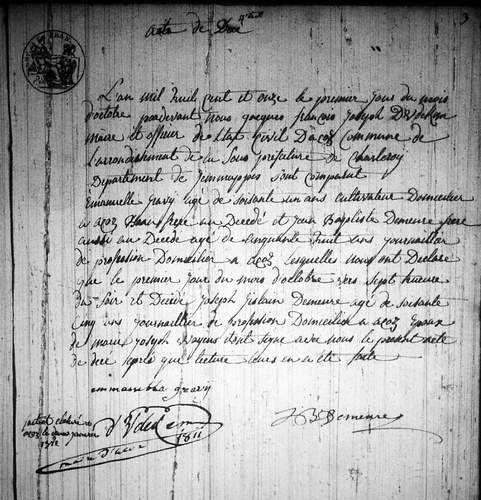 acte de Decé
L'an mil huit Cent et onze le premier jour du mois
d'octobre pardevant Nous jacques françois joseph
maire et officier de l'etat Civil D'acoz Commune de
L'arrondissement de la Sous prefecture de Charleroy
Departement de jemmappes sont comparut
Emanuelle gravy agé de soisante un ans cultivateur Domicilier
a acoz Beau frere au Decedé et jean Baptiste Demeure frere
aussi au Decedé agé de Cinquante huit ans journaillier
de profession Domicilier a acoz lesquelles Nous ont Declaré
que le premier jour du mois d'octobre vers sept heure
du Soir est Decedé joseph Gislain Demeure agé de soisante
Cinq ans journaillier de profession Domicilier a acoz Epoux
de marie joseph ont signé avec nous le present acte
de decé après que lecture leurs en a été faite
emmanuel gravy
acoz le
1811
J B Demeure